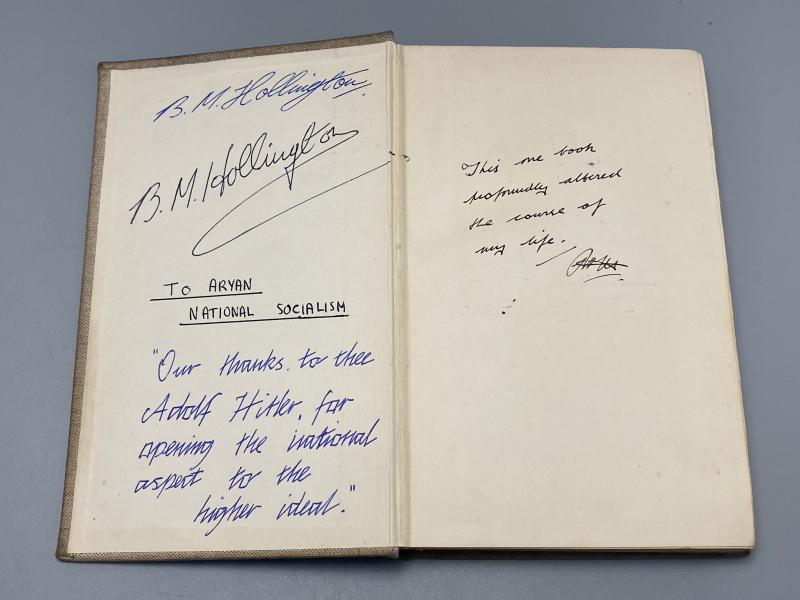 B. M. Hollington.
B. M. Hollington
TO ARYAN
NATIONAL SOCIALISM
"Our thanks to thee
Adolf Hitler, for
opening the national
aspect to the
higher ideal."
This one book
profoundly altered
the course of
my life.